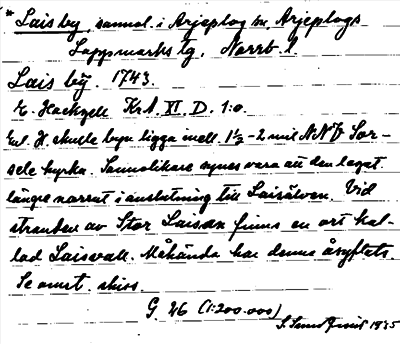 * Lais by, samml. i Arjeplog sn, Arjeplogs
Lappmarks tg, Norrb. l.
Lais bÿ. 1743.
E. Hackzell KrA XI. D. 1:0.
Enl. H. skulle byn ligga mell. 1½-2 mil NNV Sor-
sele kyrka. Sannolikare synes vara att den legat
längre norrut i anslutning till Laisälven. Vid
stranden av Stor Laisan finns en ort kal-
lad Laisvall. Måhända har denna åsyftats.
Se omst. skiss.
G. 26 (1:200.000)
1935